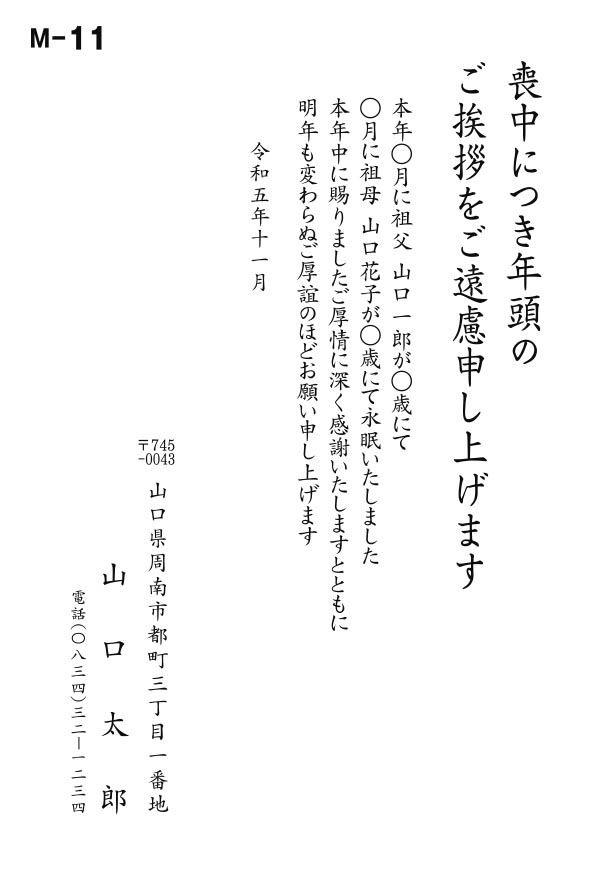 M-11
喪中につき年頭の
ご挨拶をご遠慮申し上げます
本年〇月に祖父 山口一郎が〇歳にて
〇月に祖母 山口花子が〇歳にて永眠いたしました
本年中に賜りましたご厚情に深く感謝いたしますとともに
明年も変わらぬご厚誼のほどお願い申し上げます
令和五年十一月
〒745
-0043
山口県周南市都町三丁目一番地
山口太郎
電話(〇八三四)三二―一二三四